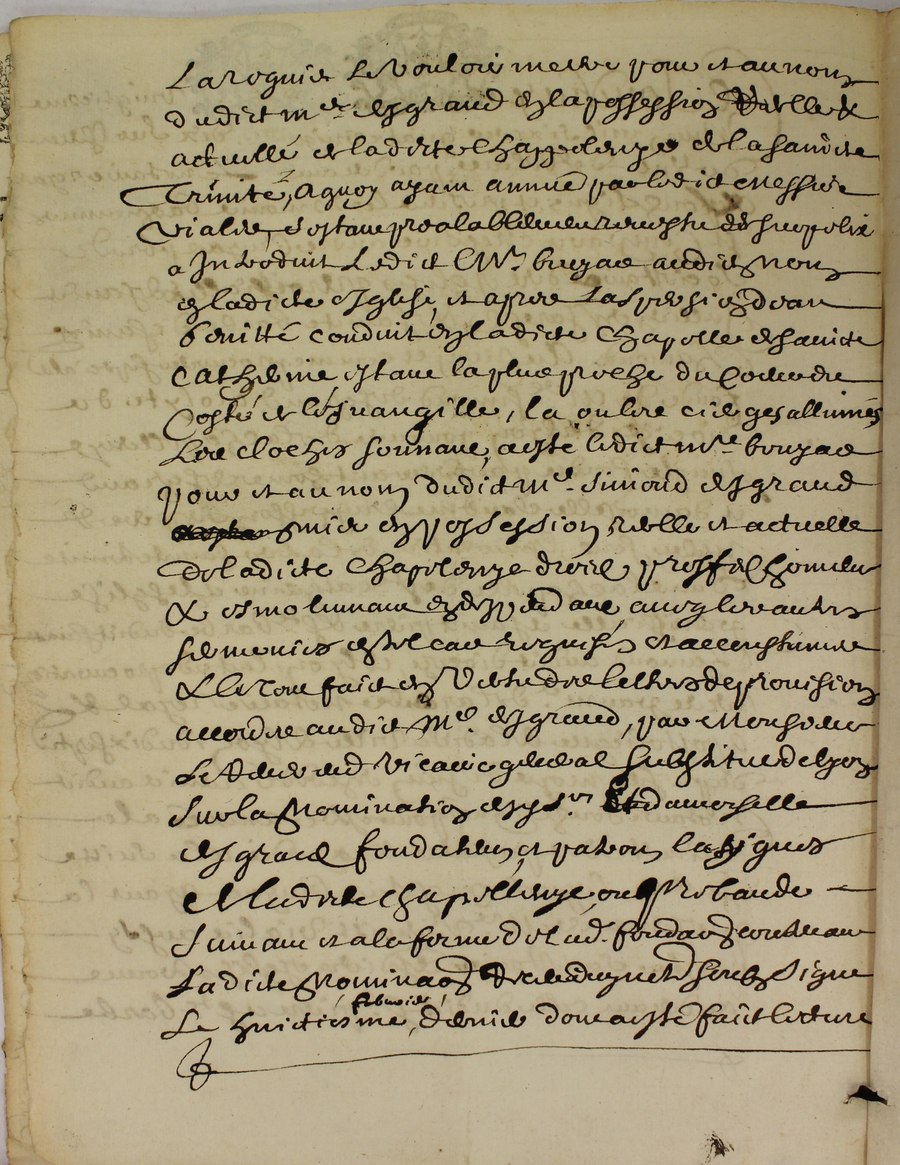 La requis le vouloir mectre pour et au nom
dudict mre Esgraud en la possession reelle &
actuelle de ladicte Chappelenye de la saincte
Trinité, A quoy ayant annué par ledict Messire
Vialle, s'estant prealablement revestu de surpelix
a Introduit Ledict Mre bouyac audict Nom
en ladicte Esglise, et apres L'aspersion d'eau
benitte conduit en ladicte Chapelle de saincte
Catherine estant la plus proche du
Costé de l'Esvangille, la ou les cierges allumés
Les cloches sonnant, a esté ledict mre bouyac
pour et au nom dudict mre Simond Esgraud
mis en possession reelle et actuelle
de ladicte Chapelenye droits proffits honneurs
& esmolumans en despendant, avec les autres
seremonies en tel cas requises et accoustumees
& le tout faict en Vertu des lettres de provision
accordee audict Mre Esgraud, par Monsieur
Le Reverend Vicaire general substitue de Lyon
Sur la Nomination de Sr Et damoiselle
Esgraud fondateurs et patrons
de ladicte Chapellenye, ou prebande
Suivant et a la forme de lad. fondaon contenant
Ladicte Nominaon soubz Signe
Le huictiesme febvrier dernier dont a esté faict lecture